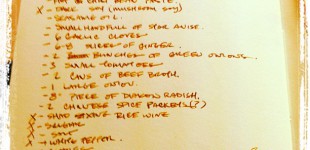 X - DARK SOY (MUSHROOM SOY)
- SESAME OIL.
- SMALL HANDFUL OF STAR ANISE.
- 6 GARLIC CLOVES
- 6-8 SLICES OF GINGER.
- 2 BUNCHES OF GREEN ONIONS.
- 3 SMALL TOMATOES
- 2 CANS OF BEEF BROTH.
- 1 LARGE ONION.
- 8" PIECE OF DAIKON RADISH.
- 2 CHINESE SPICE PACKETS(?)
X - SHAO XING RICE WINE
X - SUGAR
X - SALT
X - WHITE PEPPER.